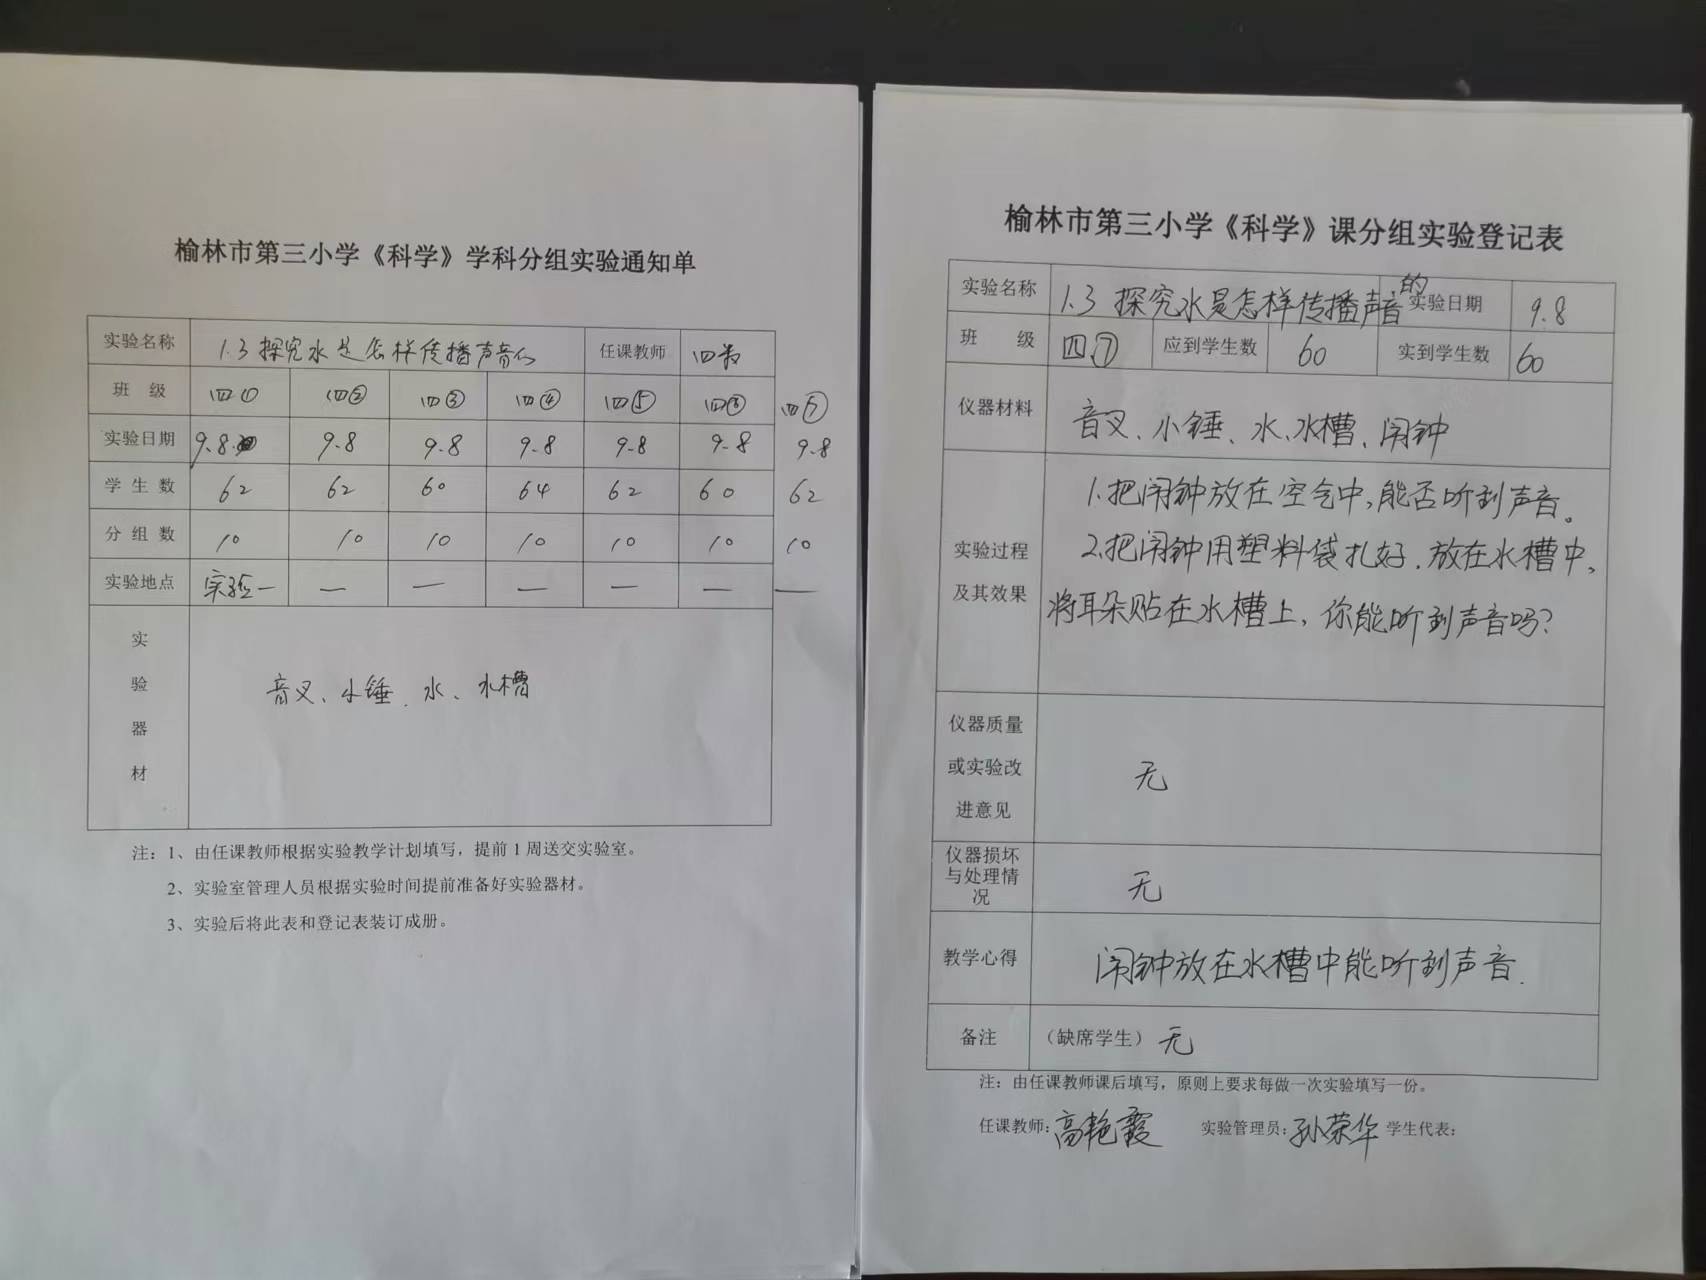 榆林市第三小学《科学》学科分组实验通知单
实验名称 1.3 探究水是怎样传播声音的 任课教师
班 级 四① 四② 四③ 四④ 四⑤ 四⑥ 四⑦
实验日期 9.8 9.8 9.8 9.8 9.8 9.8 9.8
学 生 数 62 62 60 64 62 60 62
分 组 数 10 10 10 10 10 10 10
实验地点 实验一 一 一 一 一 一 一
实验器材
音叉、小锤、水、水槽
注：1、由任课教师根据实验教学计划填写，提前 1 周送交实验室。
2、实验室管理人员根据实验时间提前准备好实验器材。
3、实验后将此表和登记表装订成册。
榆林市第三小学《科学》课分组实验登记表
实验名称 1.3 探究水是怎样传播声音的 实验日期 9.8
班 级 四⑦ 应到学生数 60 实到学生数 60
仪器材料 音叉、小锤、水、水槽、闹钟
实验过程及其效果
1.把闹钟放在空气中,能否听到声音。
2.把闹钟用塑料袋扎好.放在水槽中,
将耳朵贴在水槽上,你能听到声音吗?
仪器质量或实验改进意见 无
仪器损坏与处理情况 无
教学心得 闹钟放在水槽中能听到声音.
备注 （缺席学生） 无
注：由任课教师课后填写，原则上要求每做一次实验填写一份。
任课教师:高艳霞 实验管理员:孙荣华 学生代表: